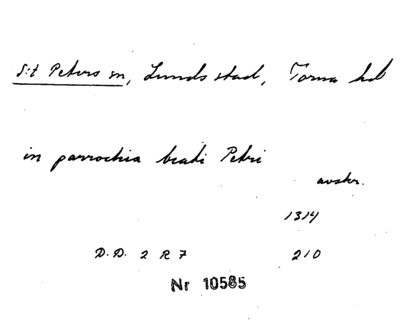 S:t Peters sn, Lunds stad, Torna hd
in parrochia beati Petri
avskr.
1314
D.D. 2 R 7 210
Nr 10585